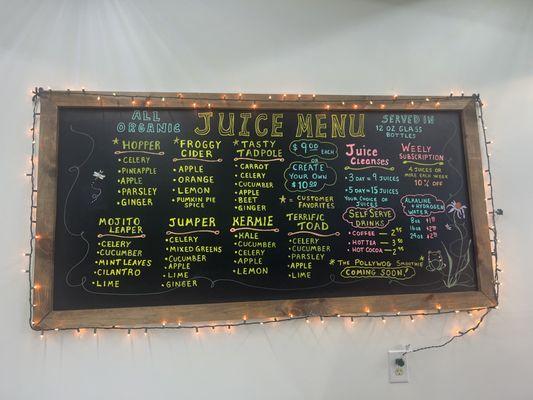 ALL ORGANIC
JUICE MENU
SERVED IN
12 OZ GLASS BOTTLES
* HOPPER
• CELERY
• PINEAPPLE
• APPLE
• PARSLEY
• GINGER
* FROGGY CIDER
• APPLE
• ORANGE
• LEMON
• PUMPKIN PIE SPICE
* TASTY TADPOLE
• CARROT
• CELERY
• CUCUMBER
• APPLE
• BEET
• GINGER
$9.00 EACH
CREATE YOUR OWN $10.00
* = CUSTOMER FAVORITES
Juice Cleanses
• 3 DAY = 9 JUICES
• 5 DAY = 15 JUICES
YOUR CHOICE OF JUICES
WEELY SUBSCRIPTION
4 JUICES OR MORE EACH WEEK
10% OFF
MOJITO LEAPER
• CELERY
• CUCUMBER
• MINT LEAVES
• CILANTRO
• LIME
JUMPER
• CELERY
• MIXED GREENS
• CUCUMBER
• APPLE
• LIME
• GINGER
KERMIE
• KALE
• CUCUMBER
• CELERY
• APPLE
• LEMON
TERRIFIC TOAD
• CELERY
• CUCUMBER
• PARSLEY
• APPLE
• LIME
SELF SERVE DRINKS
• COFFEE
• HOT TEA
• HOT COCOA
ALKALINE + HYDROGEN WATER
8oz
16oz
24oz
* THE POLLYWOG SMOOTHIE *
COMING SOON!